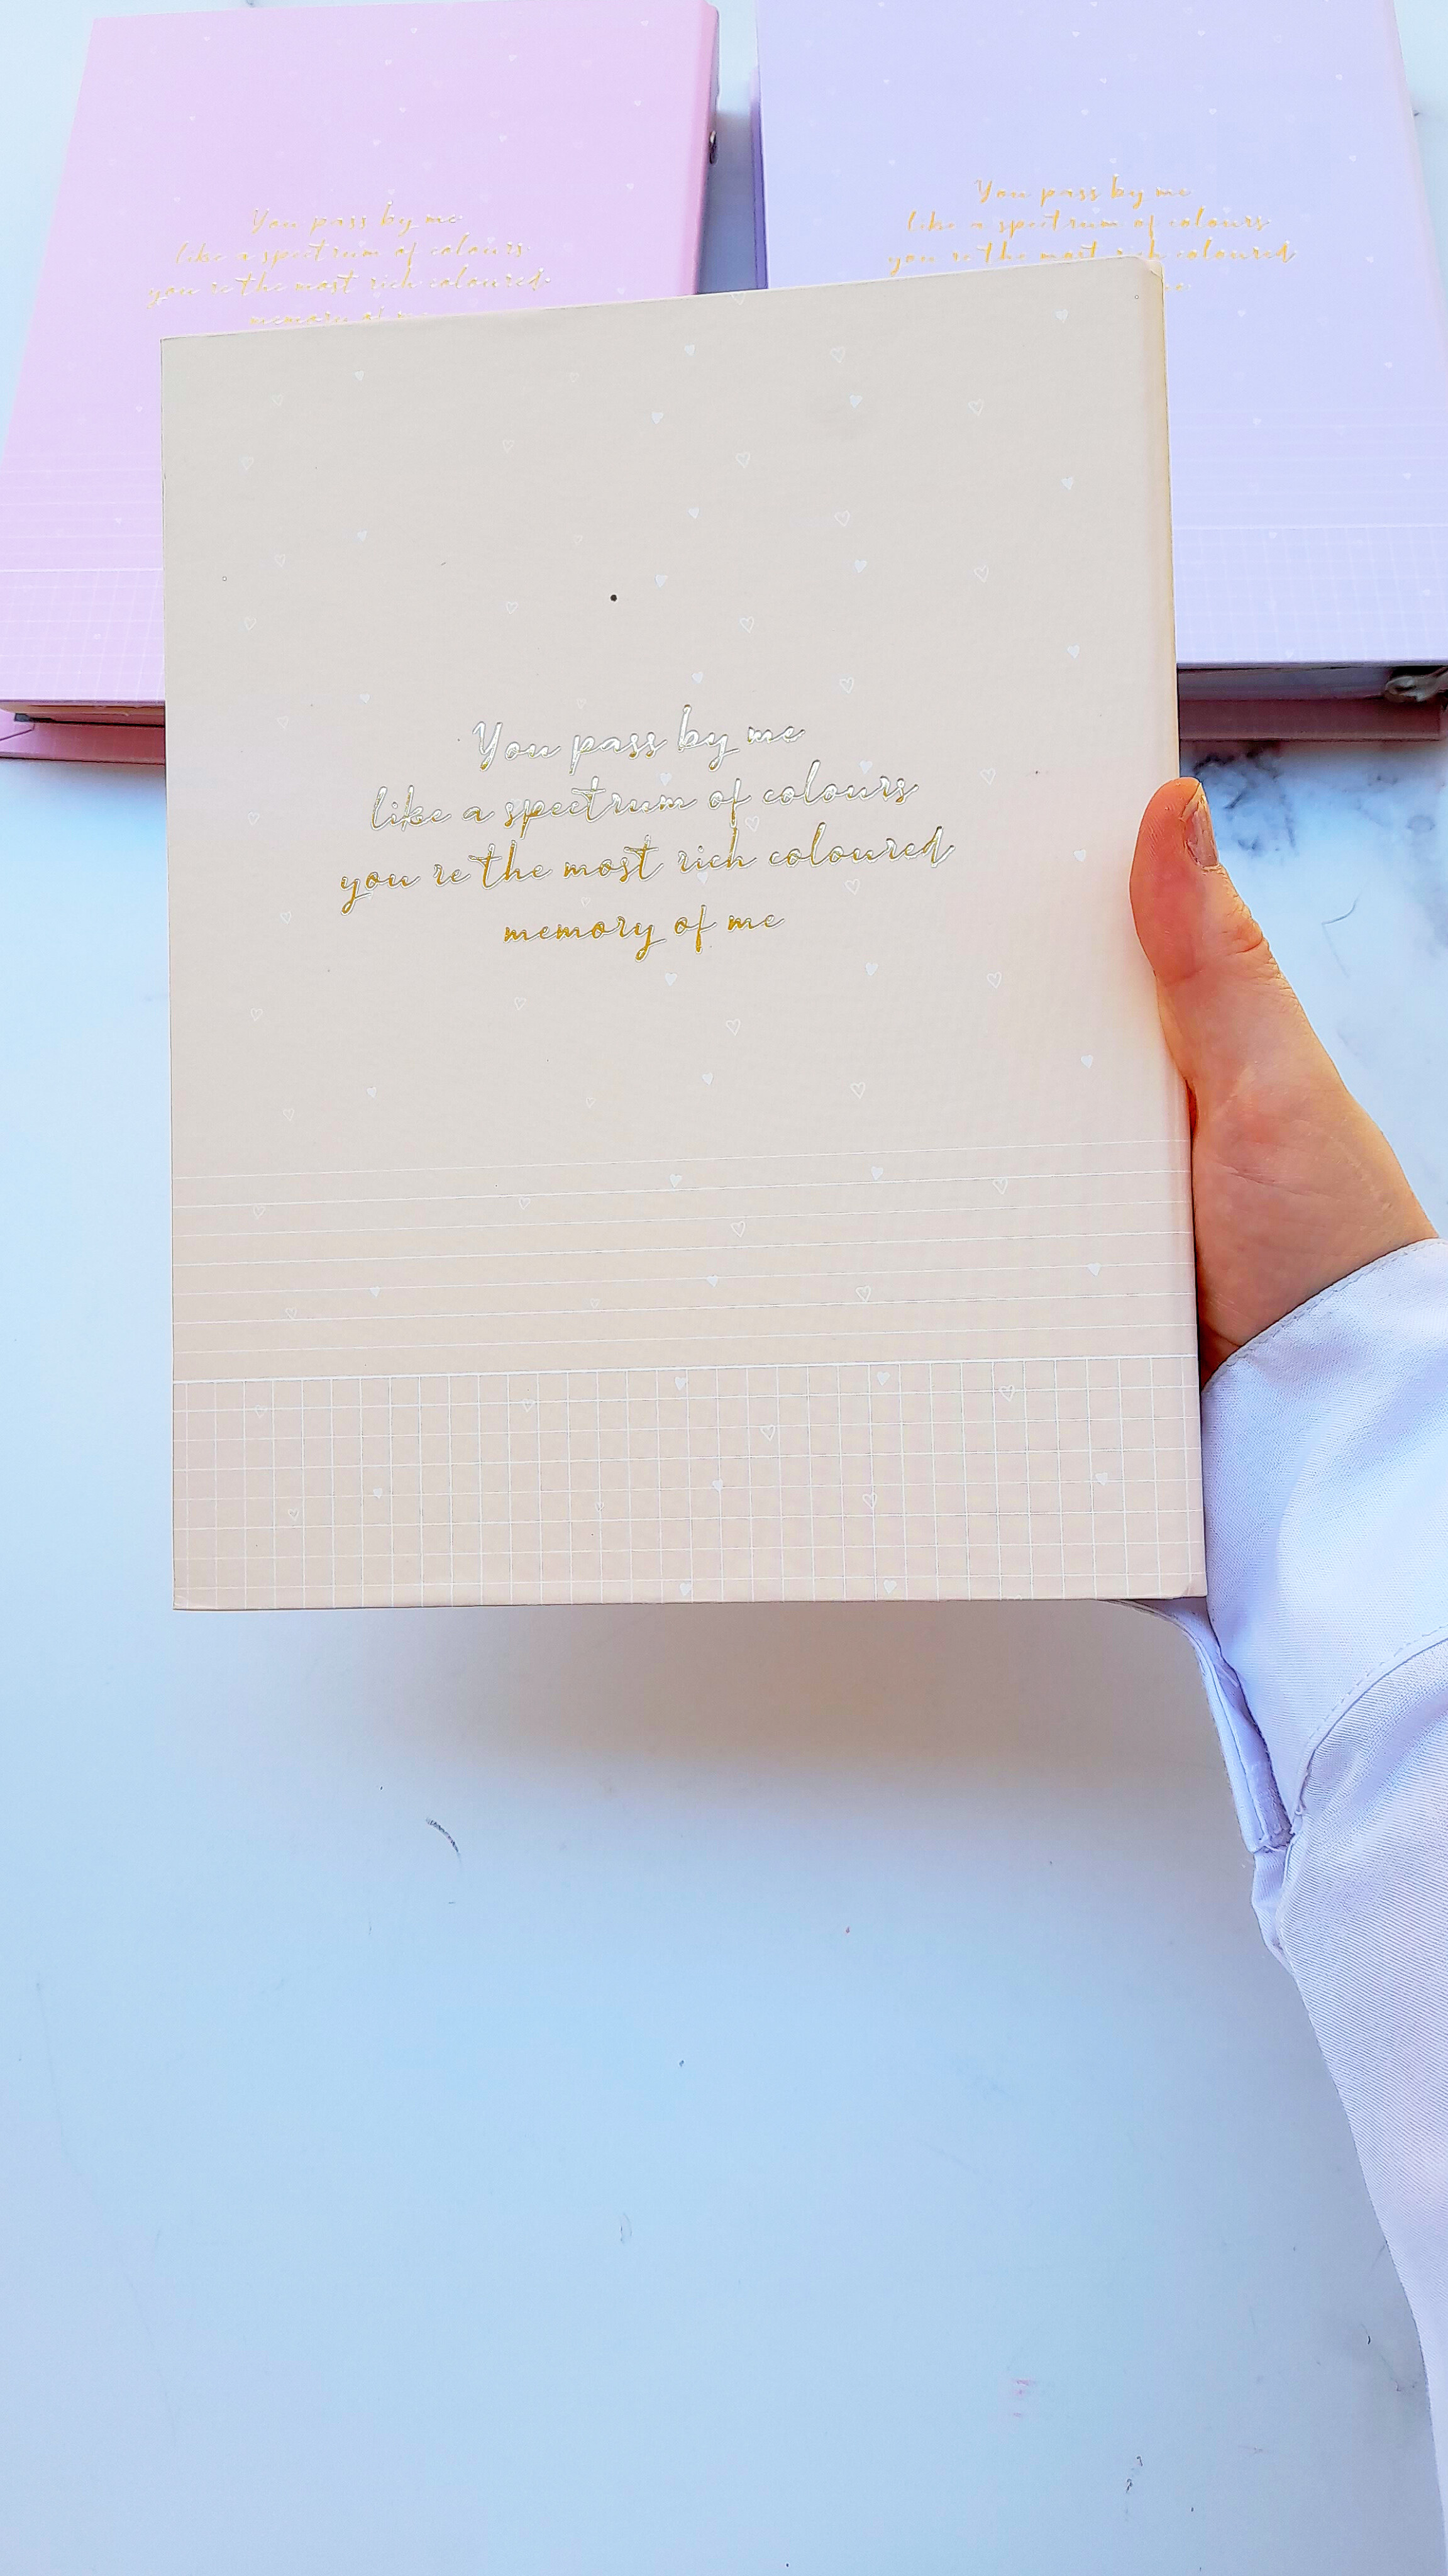 You pass by me
like a spectrum of colours
you re the most rich coloured
memory of
You pass by me
like a spectrum of colours
you re the most rich coloured
You pass by me
like a spectrum of colours
you re the most rich coloured
memory of me